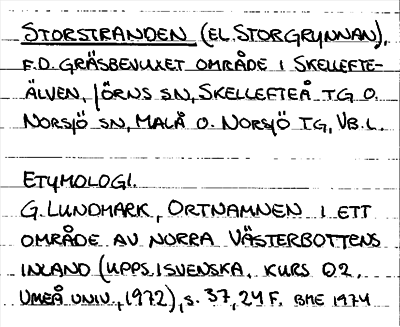 STORSTRANDEN (EL. STORGRYNNAN),
F.D. GRÄSBEVUXET OMRÅDE I SKELLEFTE-
ÄLVEN, JÖRNS SN, SKELLEFTEÅ TG O.
NORSJÖ SN, MALÅ O. NORSJÖ TG, VB.L.
ETYMOLOGI.
G. LUNDMARK, ORTNAMNEN I ETT
OMRÅDE AV NORRA VÄSTERBOTTENS
INLAND (UPPS. I SVENSKA, KURS 02,
UMEÅ UNIV., 1972), S. 37, 24 F. BME 1974